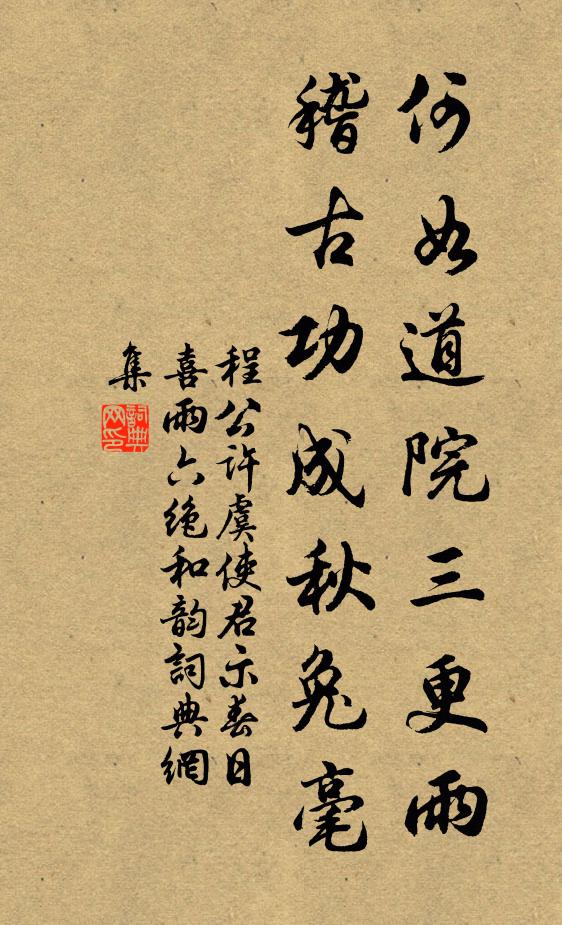 何如道院三更雨
稽古功成秋兔毫
程公許虞使君示春日
喜雨六絶和韵詞典網
集
詞典網印